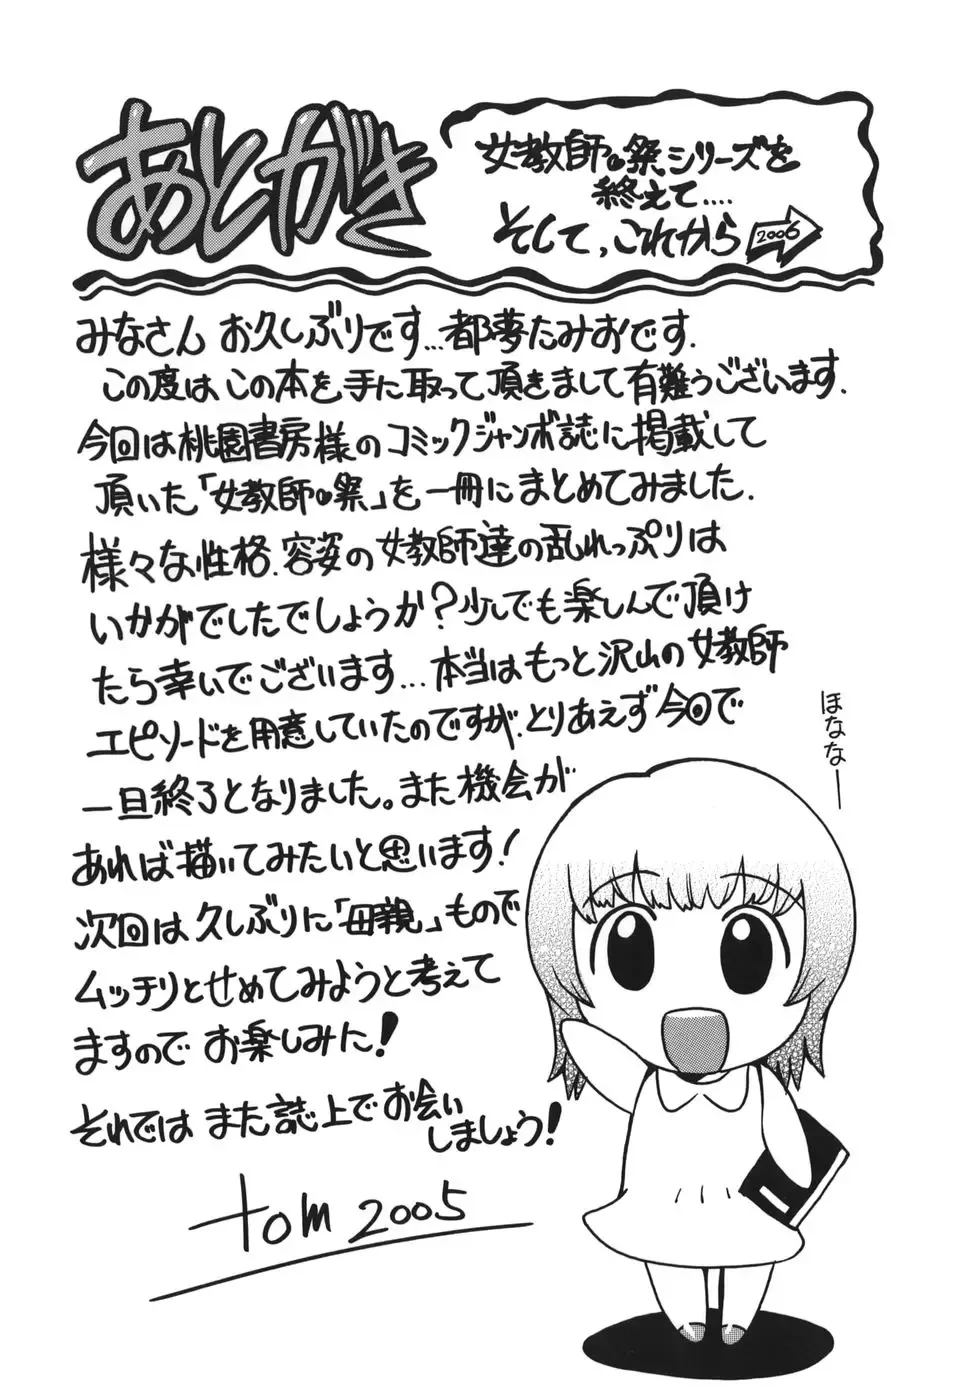 あとがき
女教師の祭シリーズを
終えて....
そして、これから
2006
みなさん お久しぶりです...都夢たみおです.
この度は、この本を、手に取って頂きまして有難うございます.
今回は桃園書房様のコミックジャンボ誌に掲載して
頂いた「女教師の祭」を一冊にまとめてみました.
様々な性格.容姿の女教師達の乱れっぷりは
いかがでしたでしょうか?少しでも楽しんで頂け
たら幸いでございます...本当はもっと沢山の女教師
エピソードを用意していたのですが、とりあえず今回で
一旦終了となりました。また機会が
あれば描いてみたいと思います!
次回は久しぶりに「母親」もので
ムッチリとせめてみようと考えて
ますので お楽しみに!
それでは また誌上でお会い
しましょう!
tom 2005
ほななー